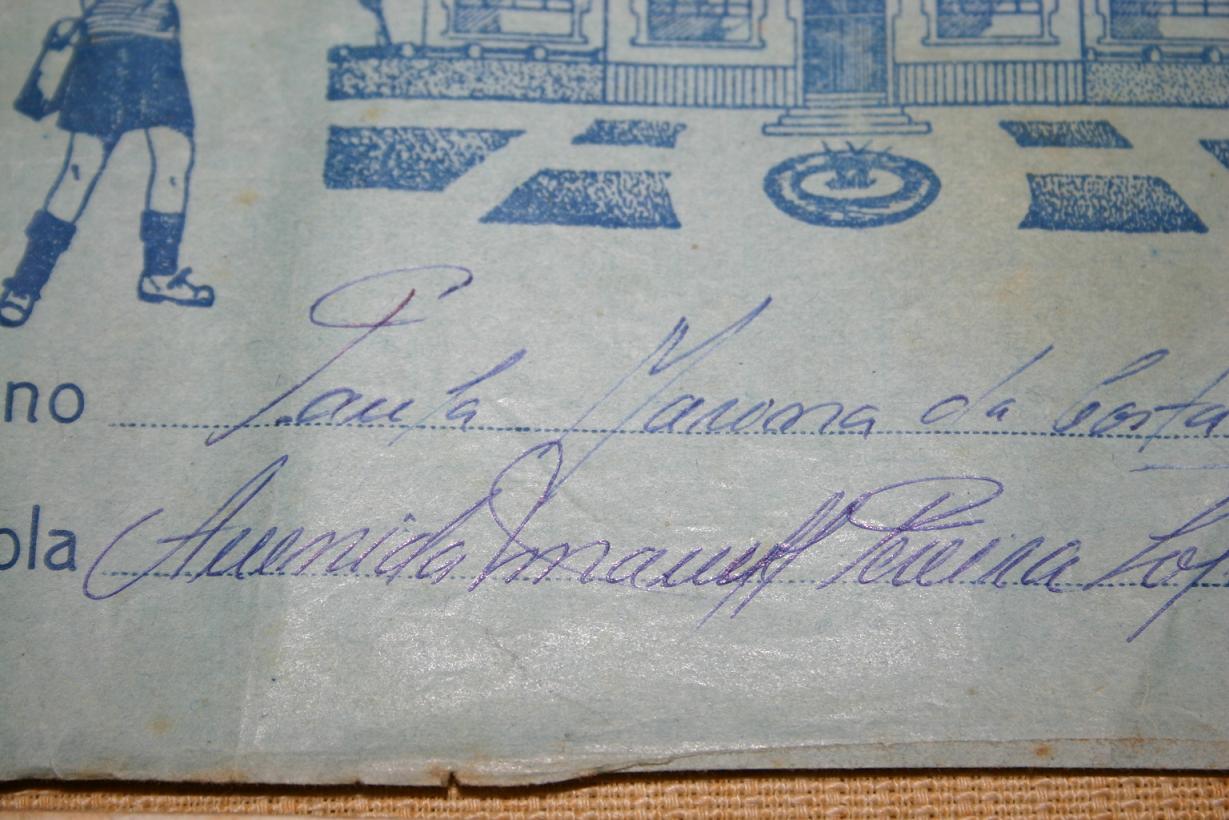 no Paula Mariana da Costa
ola Avenida Emanuel Pereira Lop